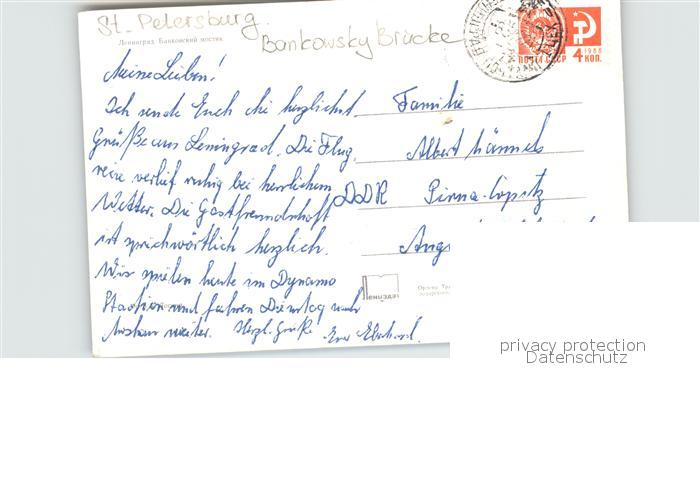 St. Petersburg.
Bankowsky Brücke
Ленинград. Банковский мостик
ПОЧТА СССР
4 КОП.
1966
Meine Lieben!
Ich sende Euch die herzlichst.
Grüße aus Leningrad. Die Flug,
reise verlief ruhig bei herrlichem
Wetter. Die Gastfreundschaft
ist sprichwörtlich herzlich.
Wir spielen heute im Dynamo
Stadion und fahren Dienstag nach
Moskau weiter. Herzl. Grüße Euer Eberhard.
Familie
Albert
DDR Pirna-Copitz
Лениздат
privacy protection
Datenschutz